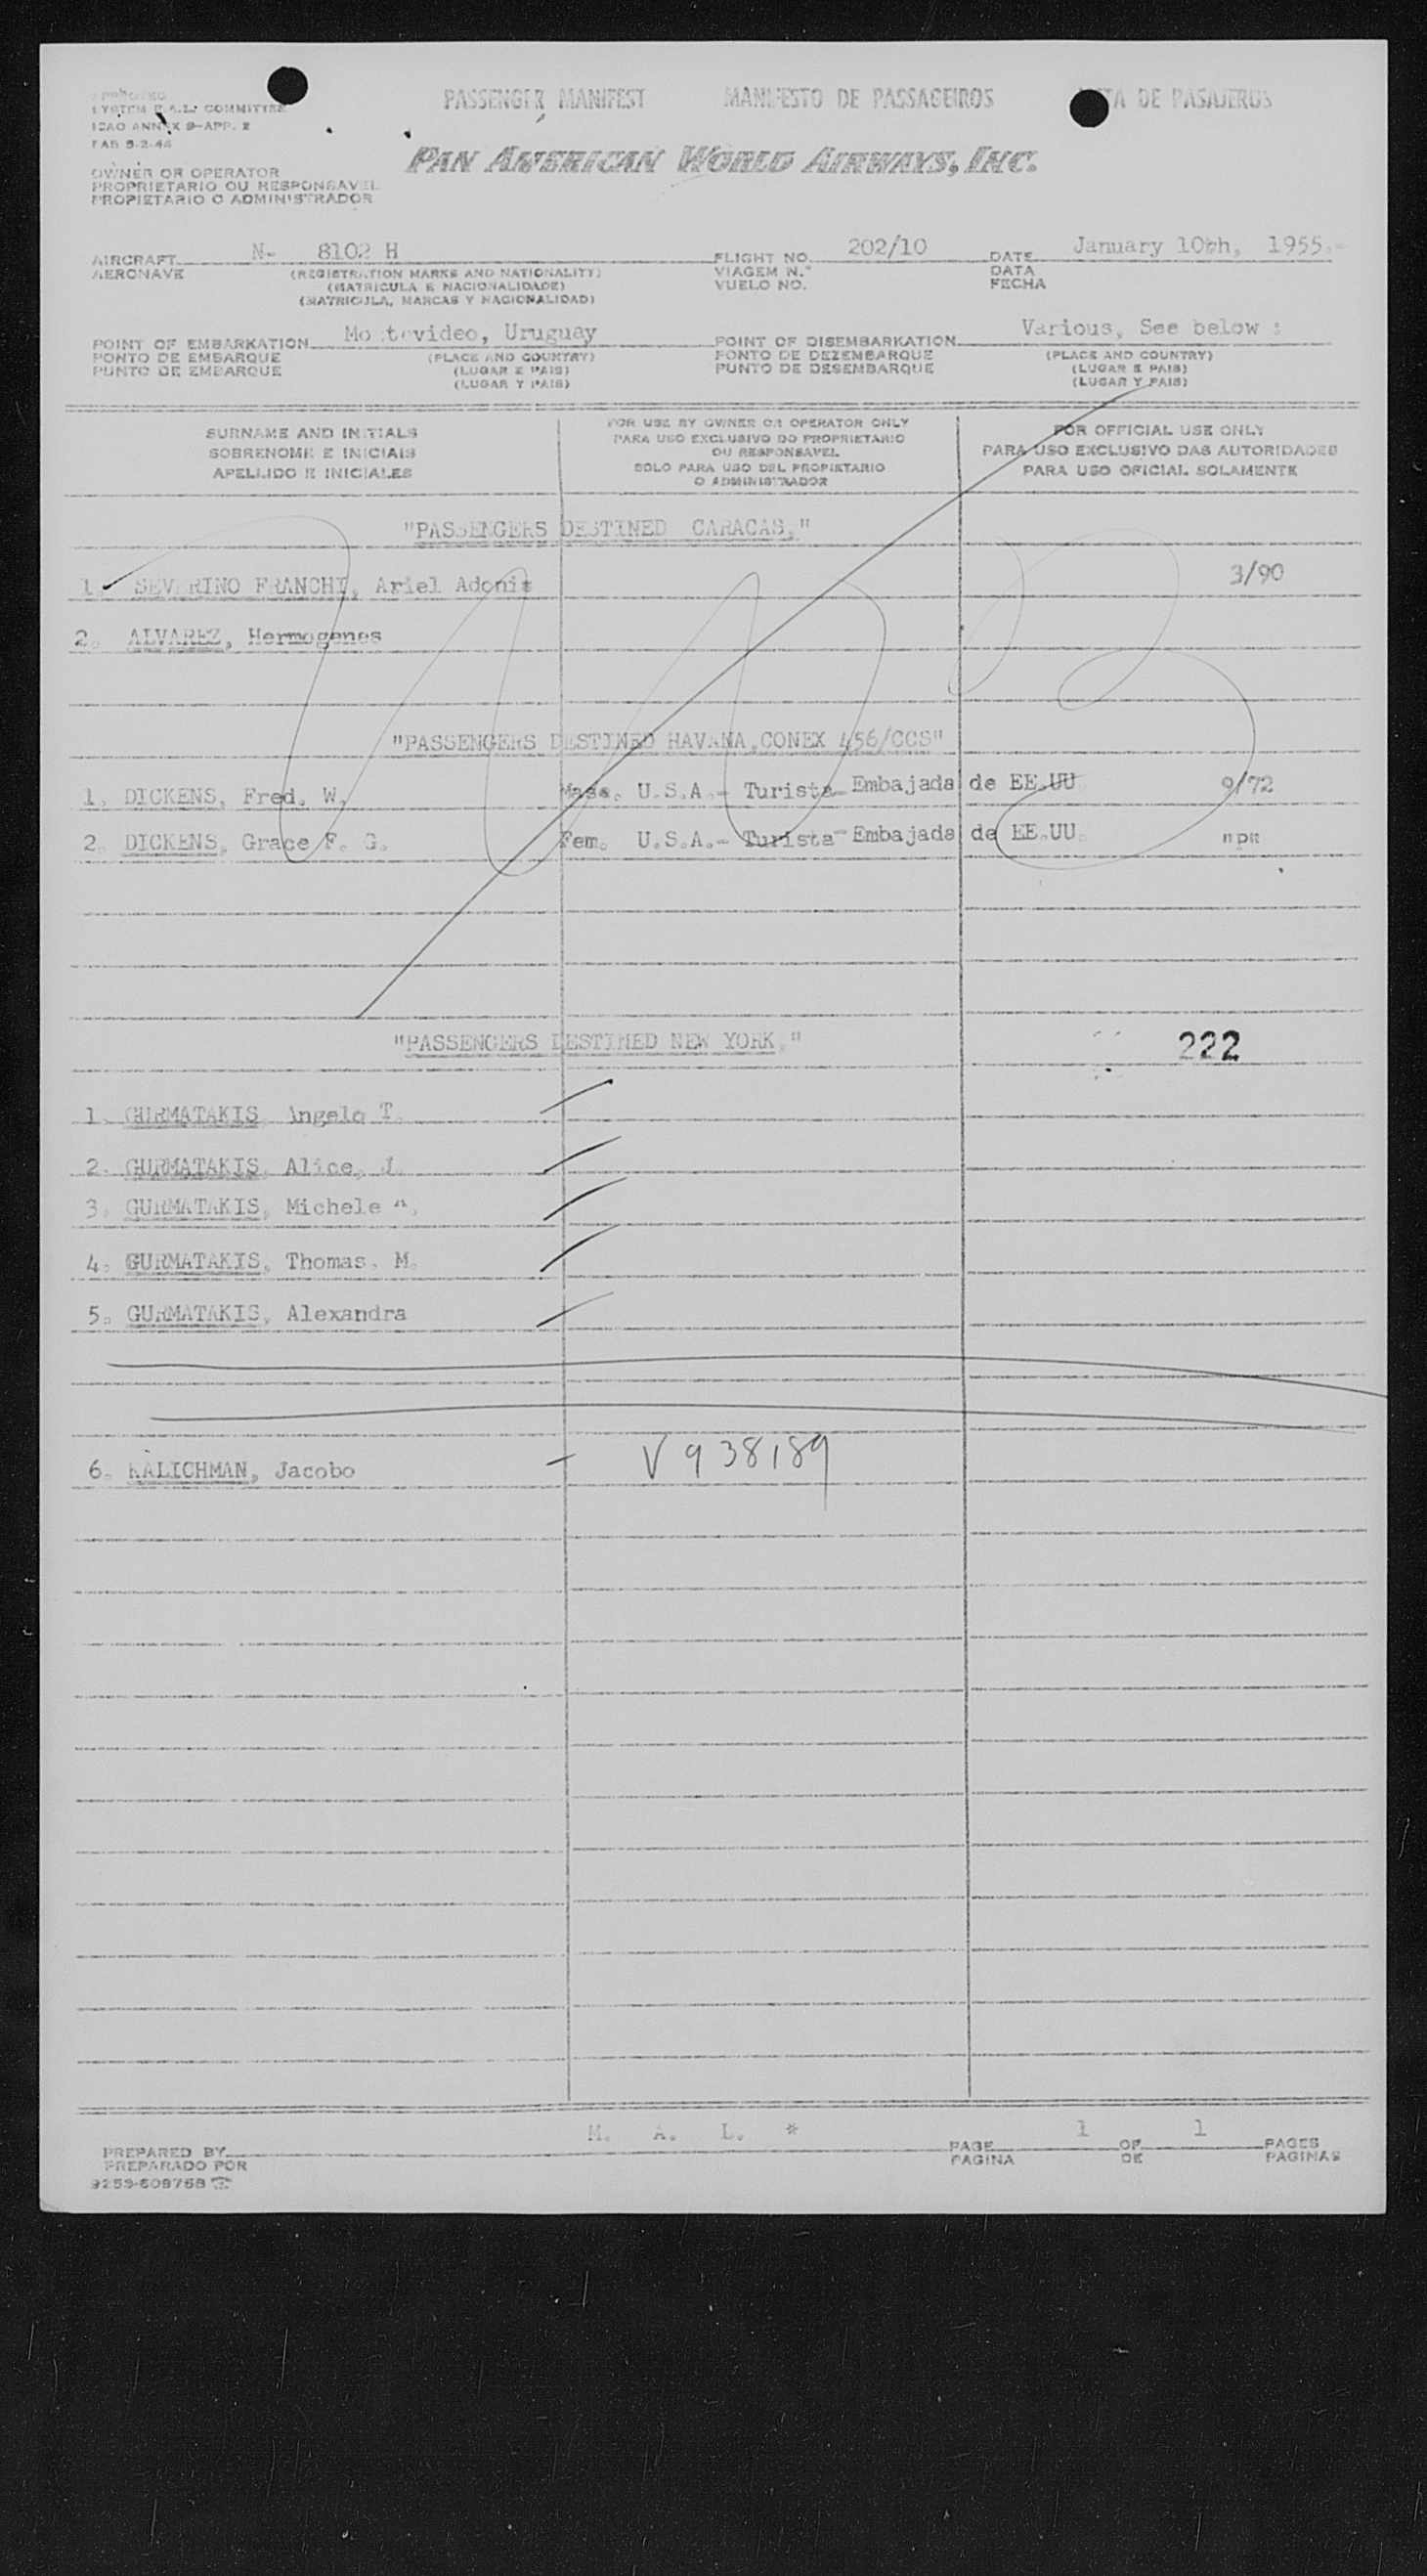 PASSENGER MANIFEST MANIFESTO DE PASSAGEIROS LISTA DE PASAJEROS
APPROVED
SYSTEM F.A.L. COMMITTEE
ICAO ANNEX 9-APP. 2
FAB 5-2-46
PAN AMERICAN WORLD AIRWAYS, INC.
OWNER OR OPERATOR
PROPRIETARIO OU RESPONSAVEL
PROPIETARIO O ADMINISTRADOR
AIRCRAFT N- 8102 H FLIGHT NO. 202/10 DATE January 10th, 1955.-
AERONAVE (REGISTRATION MARKS AND NATIONALITY) VIAGEM N.° DATA
(MATRICULA E NACIONALIDADE) VUELO NO. FECHA
(MATRICULA, MARCAS Y NACIONALIDAD)
POINT OF EMBARKATION Montevideo, Uruguay POINT OF DISEMBARKATION Various, See below :
PONTO DE EMBARQUE (PLACE AND COUNTRY) PONTO DE DEZEMBARQUE (PLACE AND COUNTRY)
PUNTO DE EMBARQUE (LUGAR E PAIS) PUNTO DE DESEMBARQUE (LUGAR E PAIS)
(LUGAR Y PAIS) (LUGAR Y PAIS)
SURNAME AND INITIALS
SOBRENOME E INICIAIS
APELLIDO E INICIALES
FOR USE BY OWNER OR OPERATOR ONLY
PARA USO EXCLUSIVO DO PROPRIETARIO
OU RESPONSAVEL
SOLO PARA USO DEL PROPIETARIO
O ADMINISTRADOR
FOR OFFICIAL USE ONLY
PARA USO EXCLUSIVO DAS AUTORIDADES
PARA USO OFICIAL SOLAMENTE
"PASSENGERS DESTINED CARACAS."
1. SEVERINO FRANCHI, Ariel Adonis 3/90
2. ALVAREZ, Hermogenes
"PASSENGERS DESTINED HAVANA,CONEX 456/CCS"
1. DICKENS, Fred. W. Masc. U.S.A.- Turista-Embajada de EE.UU 9/72
2. DICKENS, Grace F. G. Fem. U.S.A.- Turista-Embajada de EE.UU. "p"
"PASSENGERS DESTINED NEW YORK."
222
1. GURMATAKIS, Angelo T.
2. GURMATAKIS, Alice, J.
3. GURMATAKIS, Michele
4. GURMATAKIS, Thomas. M.
5. GURMATAKIS, Alexandra
6. KALICHMAN, Jacobo - V 938189
M. A. L. *
PREPARED BY PAGE 1 OF 1 PAGES
PREPARADO POR PAGINA DE PAGINAS
9259-609768